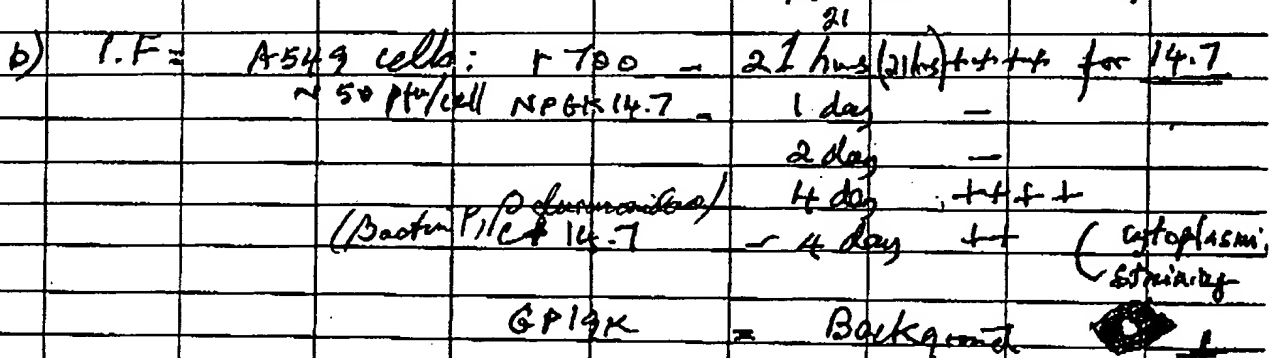 21
b) I.F = A549 cells: r 700 - 21 hrs (21hrs) +++++ for 14.7
~ 50 pfu/cell NPGK14.7 - 1 day -
2 day -
4 day ++++
(Bactin P, CP 14.7 - 4 day ++ (cytoplasmi.
staining
GP19K = Background